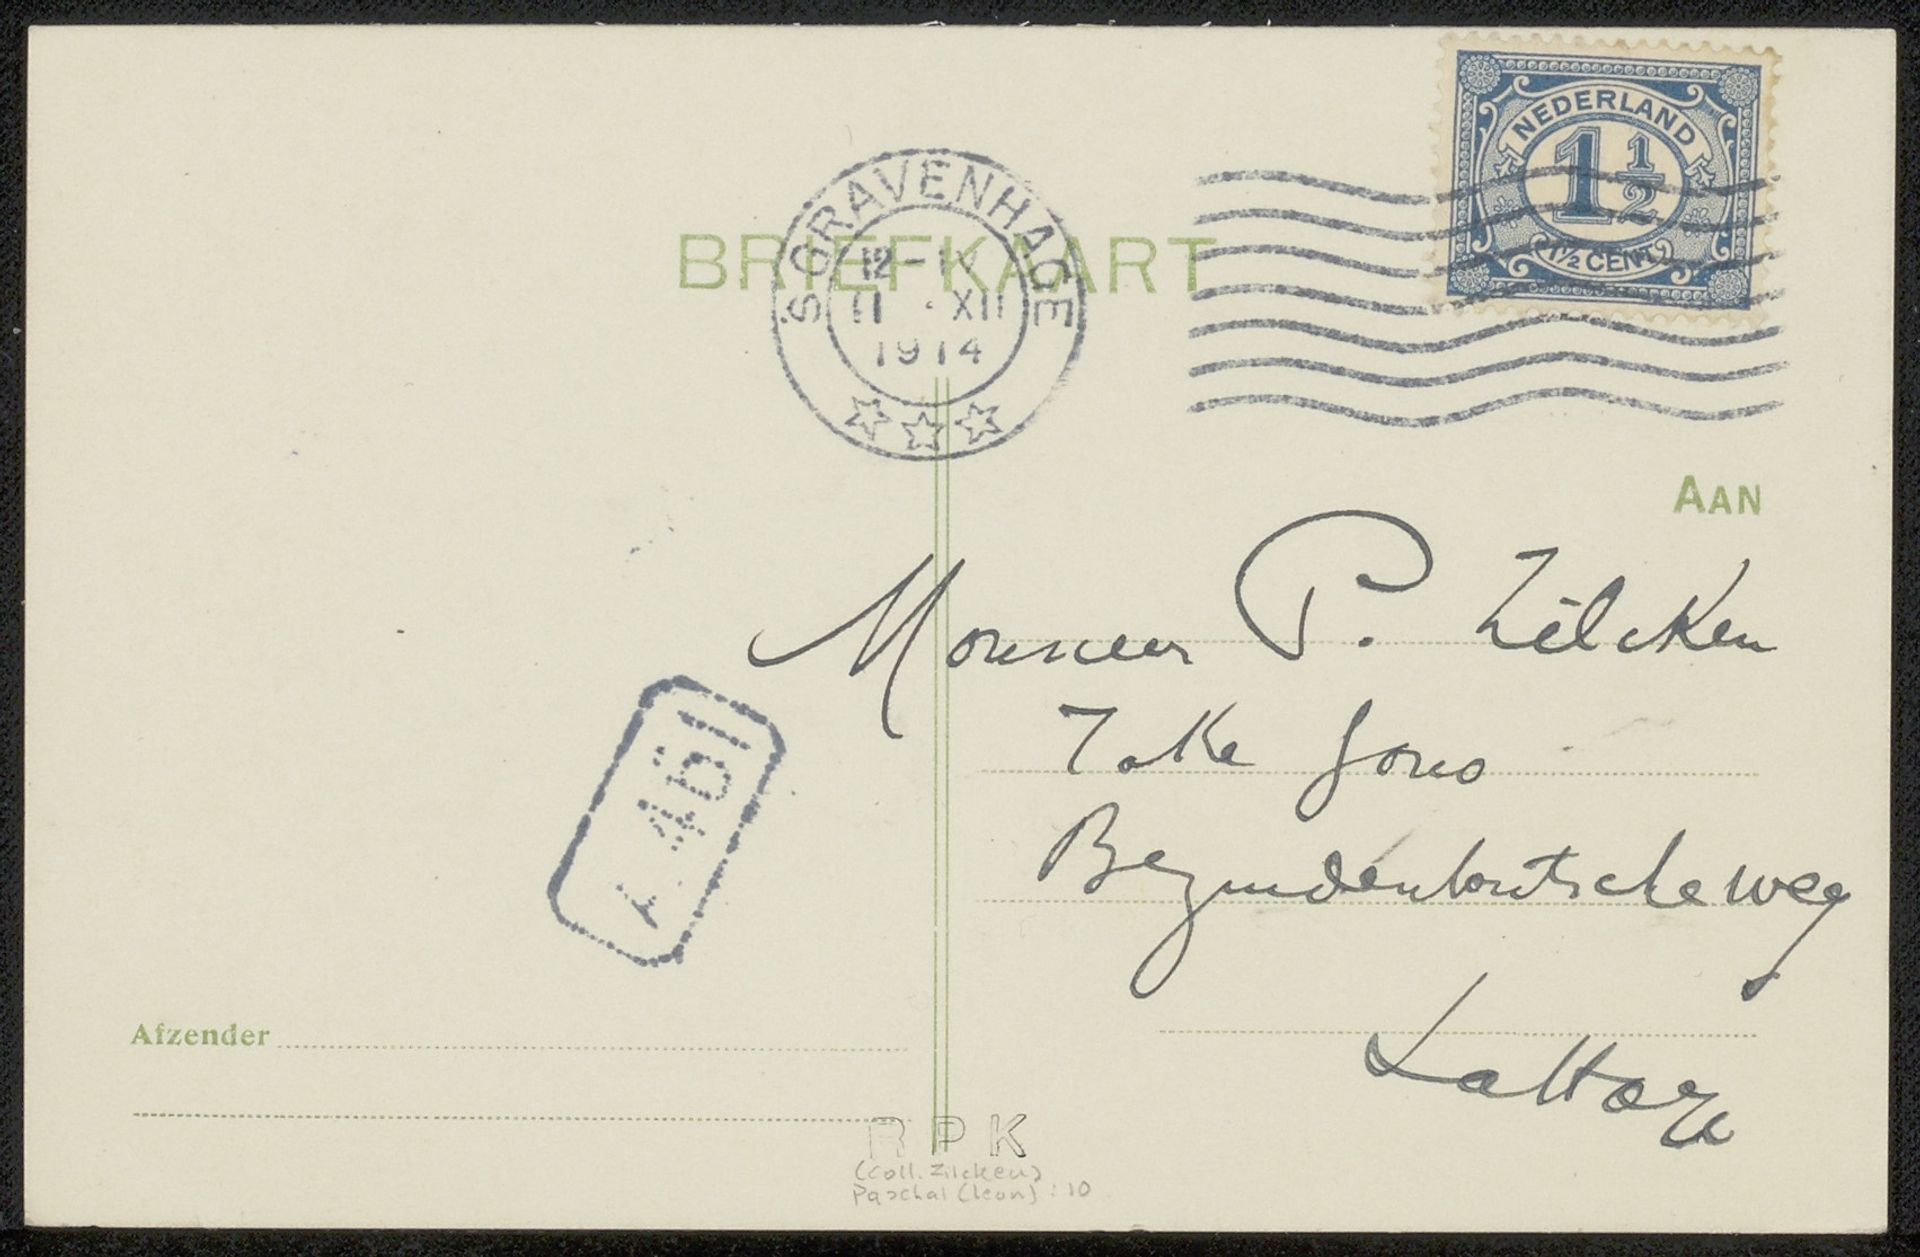 NEDERLAND
1½
1½ CENT
'S GRAVENHAGE
12-1 V
11 · XII
1914
BRIEFKAART
AAN
Monsieur P. Zilcken
Take Jono
Bezuidenhoutscheweg
La Haye
A 461
Afzender
RPK
(coll. Zilcken)
Paschal (Leon) : 10